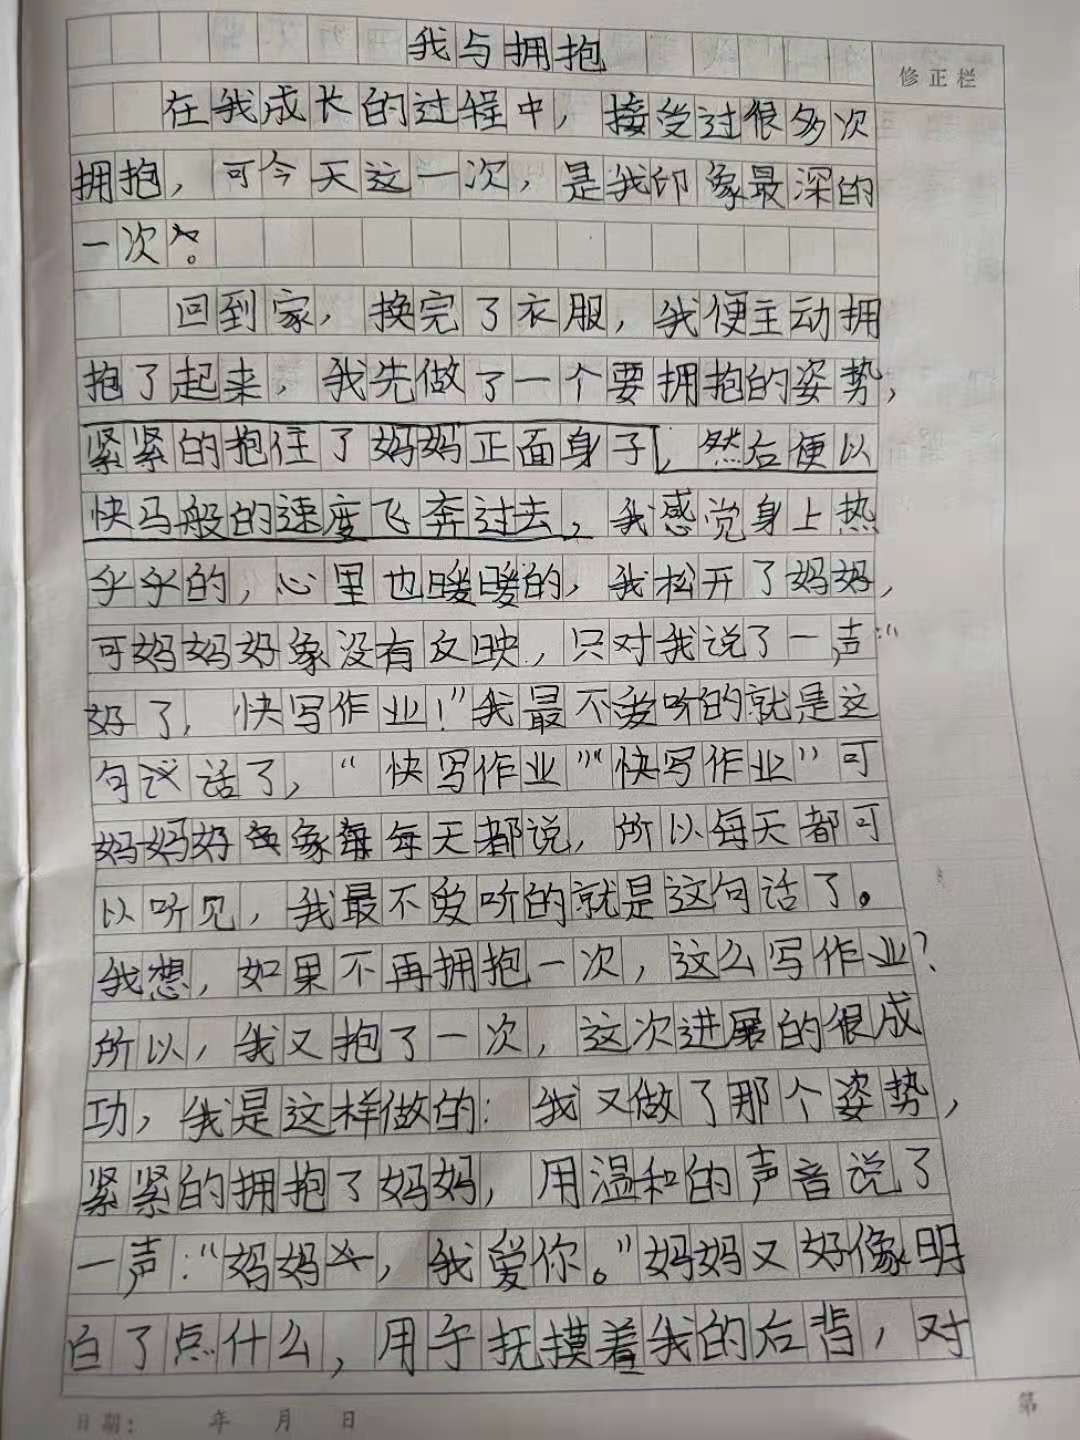 我与拥抱
修正栏
在我成长的过程中，接受过很多次
拥抱，可今天这一次，是我印象最深的
一次。
回到家，换完了衣服，我便主动拥
抱了起来，我先做了一个要拥抱的姿势，
紧紧的抱住了妈妈正面身子，然后便以
快马般的速度飞奔过去，我感觉身上热
乎乎的，心里也暖暖的，我松开了妈妈，
可妈妈好象没有反映，只对我说了一声：“
好了，快写作业！”我最不爱听的就是这
句话了，“快写作业”“快写作业”可
妈妈好象每天都说，所以每天都可
以听见，我最不爱听的就是这句话了。
我想，如果不再拥抱一次，这么写作业？
所以，我又抱了一次，这次进展的很成
功，我是这样做的：我又做了那个姿势，
紧紧的拥抱了妈妈，用温和的声音说了
一声：“妈妈，我爱你。”妈妈又好像明
白了点什么，用手抚摸着我的后背，对
日期： 年 月 日
第